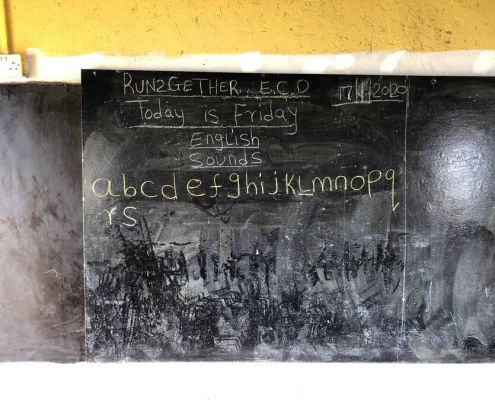 RUN2GETHER. E.C.D 17/1/2020
Today is Friday
English
Sounds
abcdefghijkLmnopq
rs